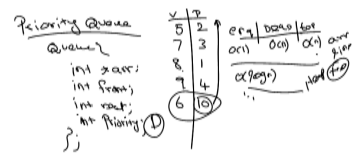 Priority Queue
Queue{
int *arr;
int front;
int rear;
int Priority; D
};
V P
5 2
7 3
8 1
9 4
6 10
enq Dequ top
O(1) O(n) O(n) arr
O(logn)